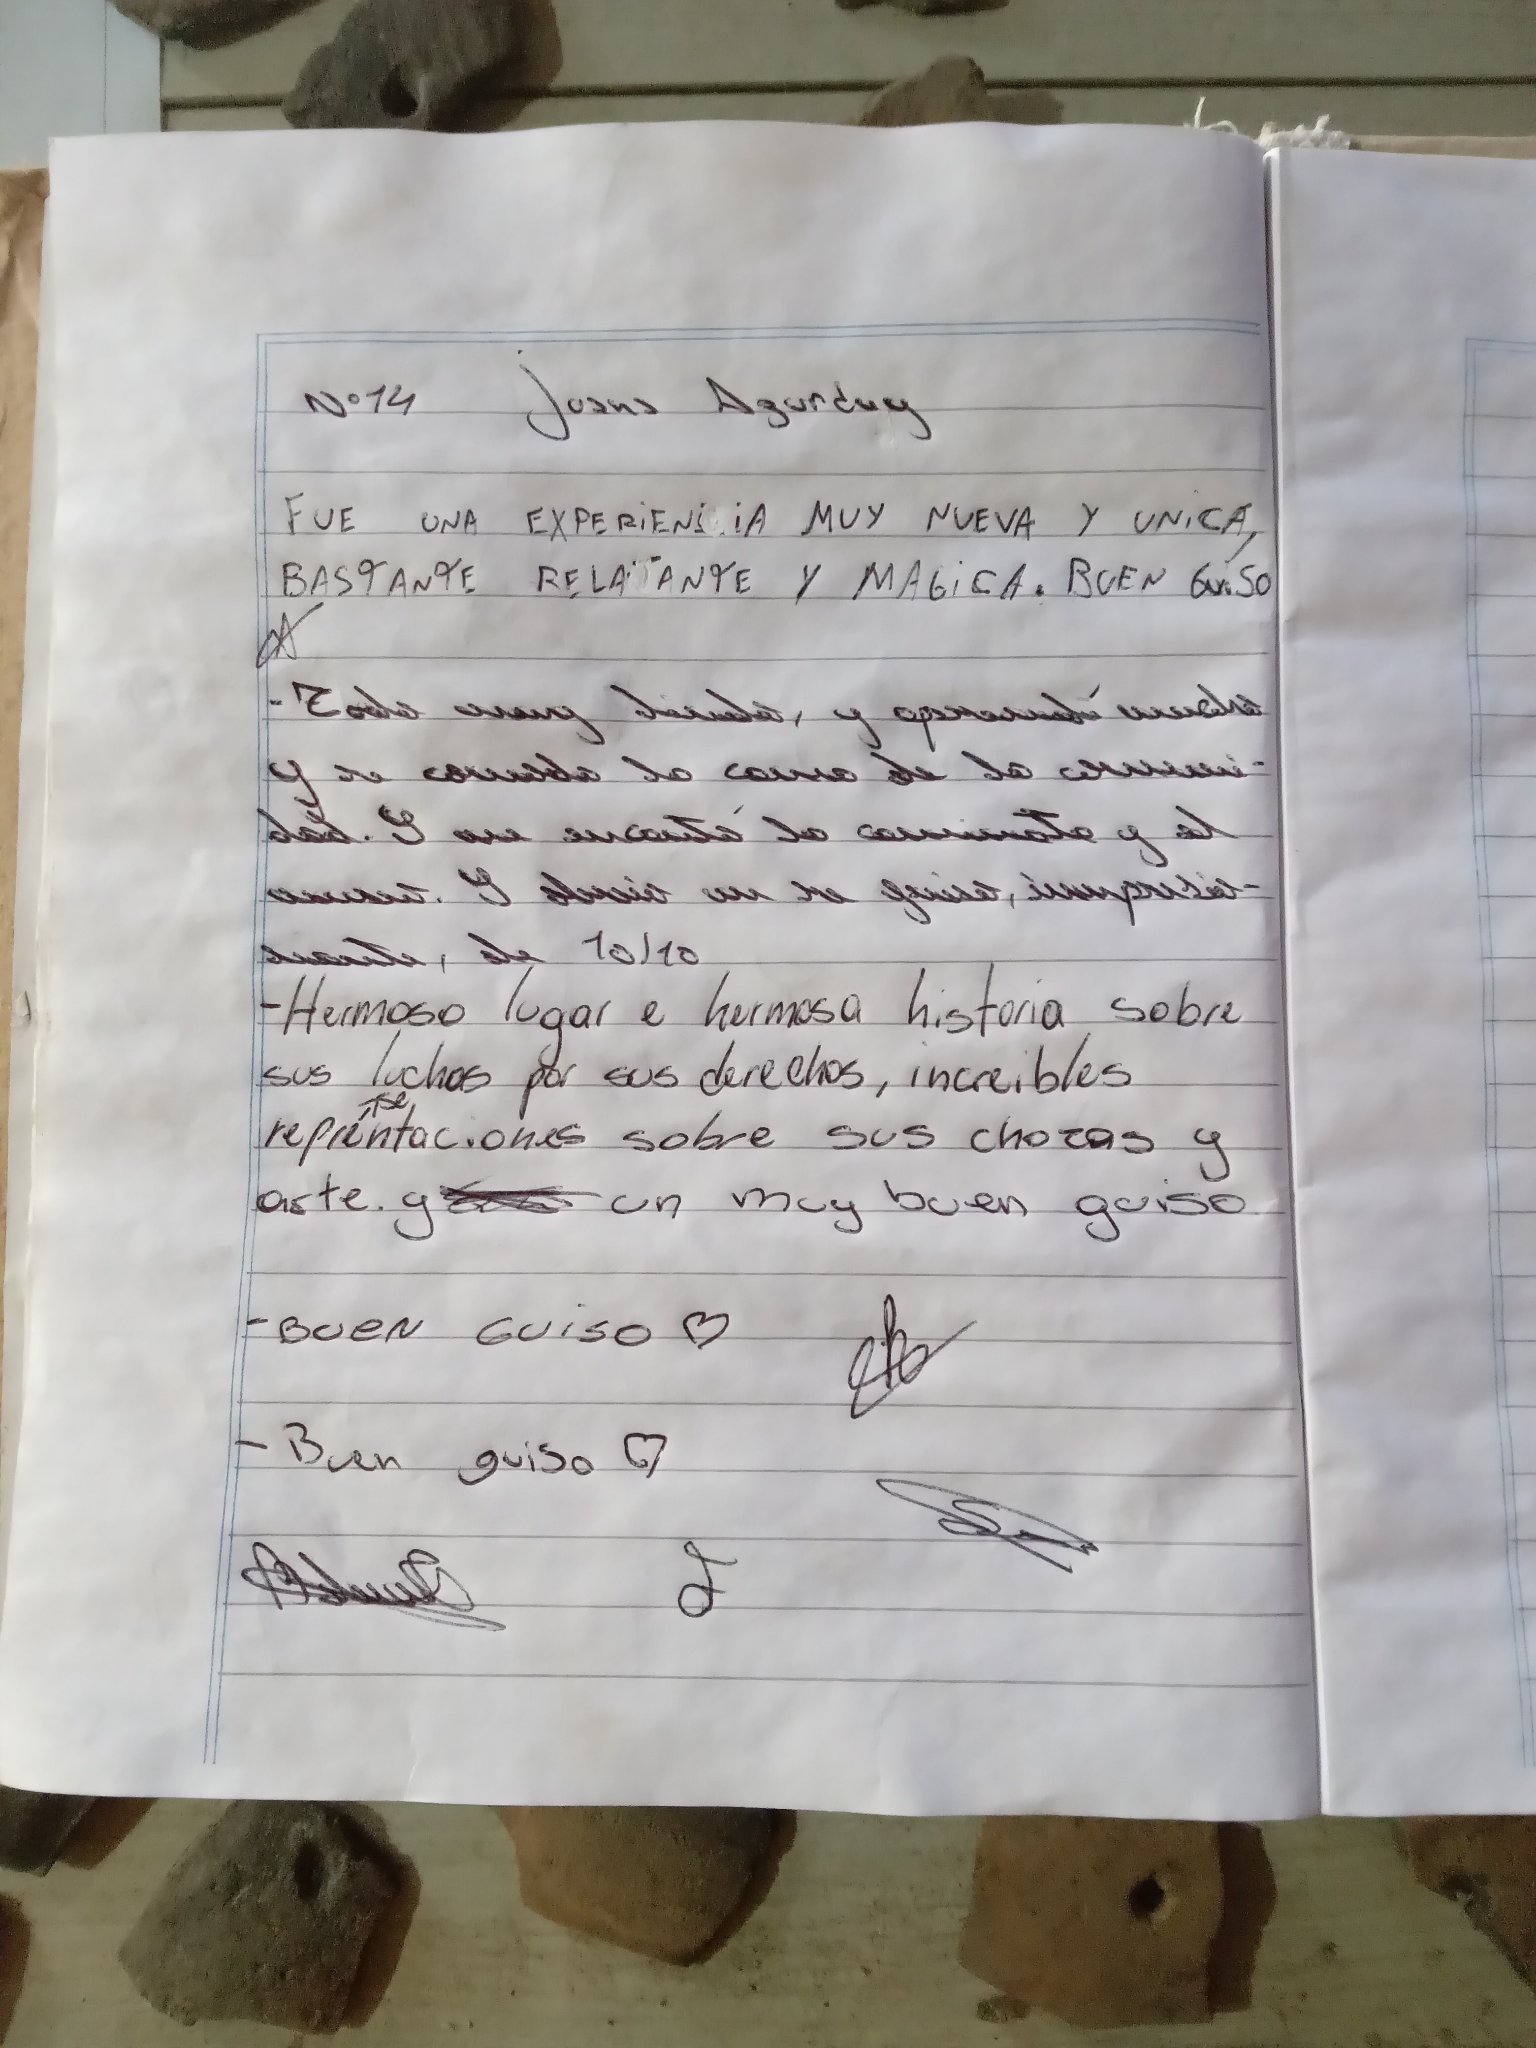 Nº14 Juana Azurduy
FUE UNA EXPERIENSIA MUY NUEVA Y UNICA,
BASTANTE RELAJANTE Y MAGICA. BUEN GUISO
- Todo muy lindo, y aprendí mucho
y re comoda la casa de la comuni-
dad. Y me encantó la caminata y el
. Y el un re guiso, impresio-
nante, de 10/10
-Hermoso lugar e hermosa historia sobre
sus luchas por sus derechos, increibles
representaciones sobre sus chozas y
arte. y un muy buen guiso
-BUEN GUISO ♡
- Buen guiso ♡